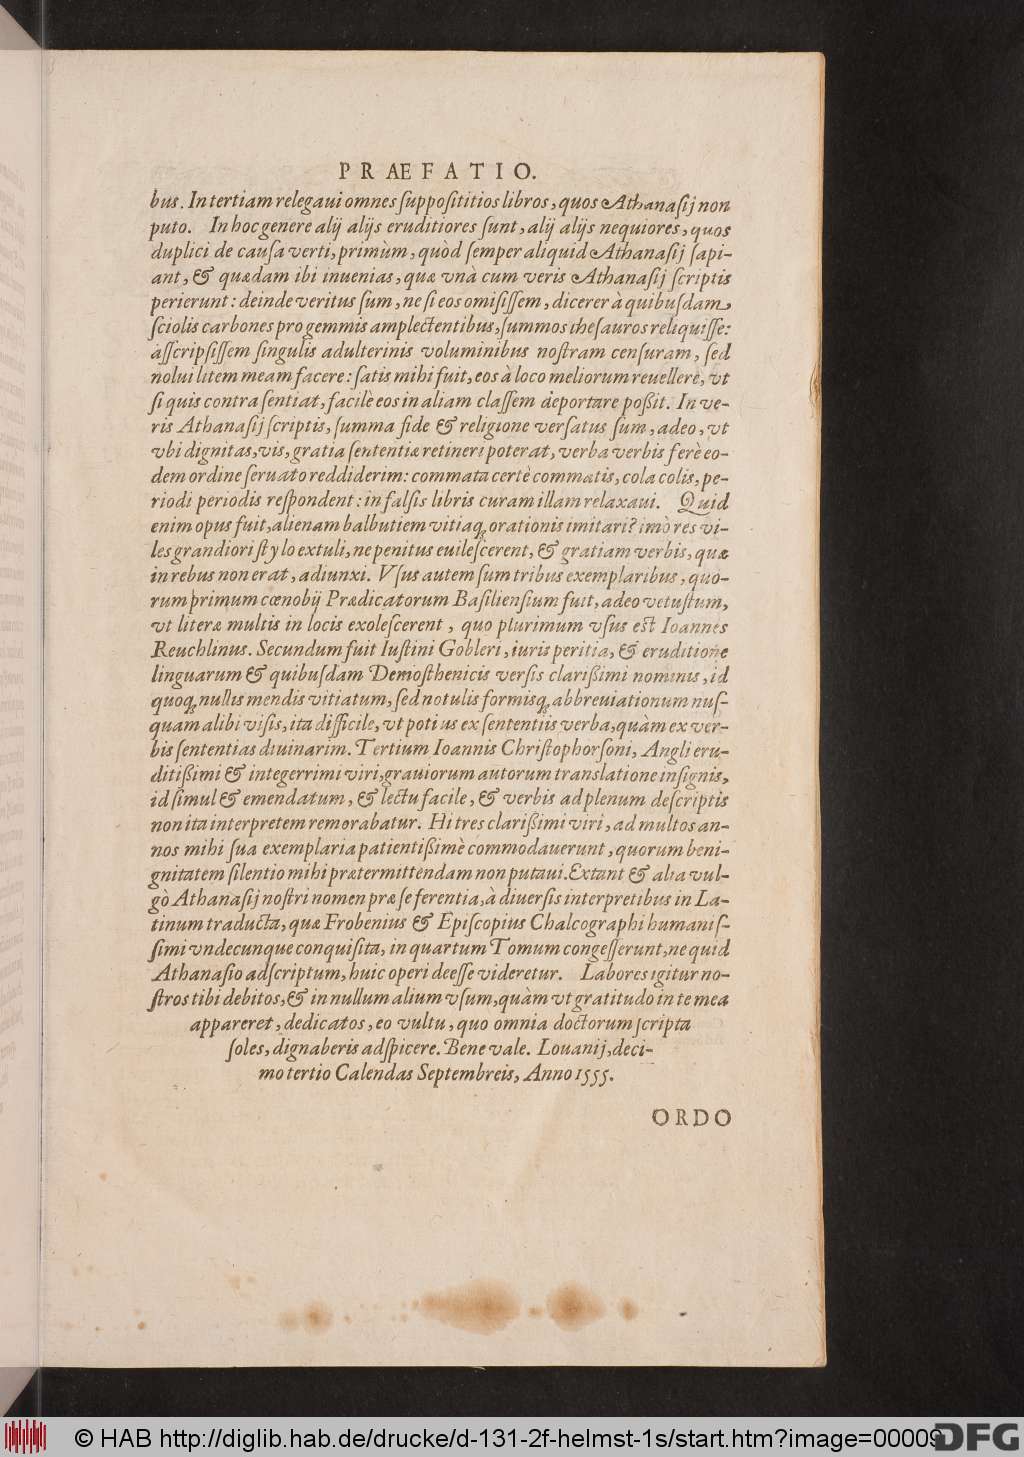 PRÆFATIO.
bus. In tertiam relegaui omnes ſuppoſititios libros, quos Athanaſij non
puto. In hoc genere alij alijs eruditiores ſunt, alij alijs nequiores, quos
duplici de cauſa verti, primùm, quòd ſemper aliquid Athanaſij ſapi-
ant, & quædam ibi inuenias, quæ vnà cum veris Athanaſij ſcriptis
perierunt: deinde veritus ſum, ne ſi eos omiſiſſem, dicerer à quibuſdam
ſciolis carbones pro gemmis amplectentibus, ſummos theſauros reliquiſſe:
aſſcripſiſſem ſingulis adulterinis voluminibus noſtram cenſuram, ſed
nolui litem meam facere: ſatis mihi fuit, eos à loco meliorum reuellere, vt
ſi quis contra ſentiat, facilè eos in aliam claſſem deportare poßit. In ve-
ris Athanaſij ſcriptis, ſumma fide & religione verſatus ſum, adeo, vt
vbi dignitas, vis, gratia ſententiæ retineri poterat, verba verbis ferè eo-
dem ordine ſeruato reddiderim: commata certè commatis, cola colis, pe-
riodi periodis reſpondent: in falſis libris curam illam relaxaui. Quid
enim opus fuit, alienam balbutiem vitiaq; orationis imitari? imò res vi-
les grandiori ſtylo extuli, ne penitus euileſcerent, & gratiam verbis, quæ
in rebus non erat, adiunxi. Vſus autem ſum tribus exemplaribus, quo-
rum primum cœnobij Prædicatorum Baſilienſium fuit, adeo vetuſtum,
vt literæ multis in locis exoleſcerent, quo plurimum vſus eſt Ioannes
Reuchlinus. Secundum fuit Iuſtini Gobleri, iuris peritia, & eruditione
linguarum & quibuſdam Demoſthenicis verſis clarißimi nominis, id
quoq; nullis mendis vitiatum, ſed notulis formiſq; abbreuiationum nuſ-
quam alibi viſis, ita difficile, vt potius ex ſententiis verba, quàm ex ver-
bis ſententias diuinarim. Tertium Ioannis Chriſtophorſoni, Angli eru-
ditißimi & integerrimi viri, grauiorum autorum translatione inſignis,
id ſimul & emendatum, & lectu facile, & verbis ad plenum deſcriptis
non ita interpretem remorabatur. Hi tres clarißimi viri, ad multos an-
nos mihi ſua exemplaria patientißimè commodauerunt, quorum beni-
gnitatem ſilentio mihi prætermittendam non putaui. Extant & alia vul-
gò Athanaſij noſtri nomen præ ſe ferentia, à diuerſis interpretibus in La-
tinum traducta, quæ Frobenius & Epiſcopius Chalcographi humaniſ-
ſimi vndecunque conquiſita, in quartum Tomum congeſſerunt, ne quid
Athanaſio adſcriptum, huic operi deeſſe videretur. Labores igitur no-
ſtros tibi debitos, & in nullum alium vſum, quàm vt gratitudo in te mea
appareret, dedicatos, eo vultu, quo omnia doctorum ſcripta
ſoles, dignaberis adſpicere. Bene vale. Louanij, deci-
mo tertio Calendas Septembreis, Anno 1555.
ORDO
© HAB http://diglib.hab.de/drucke/d-131-2f-helmst-1s/start.htm?image=00009
DFG